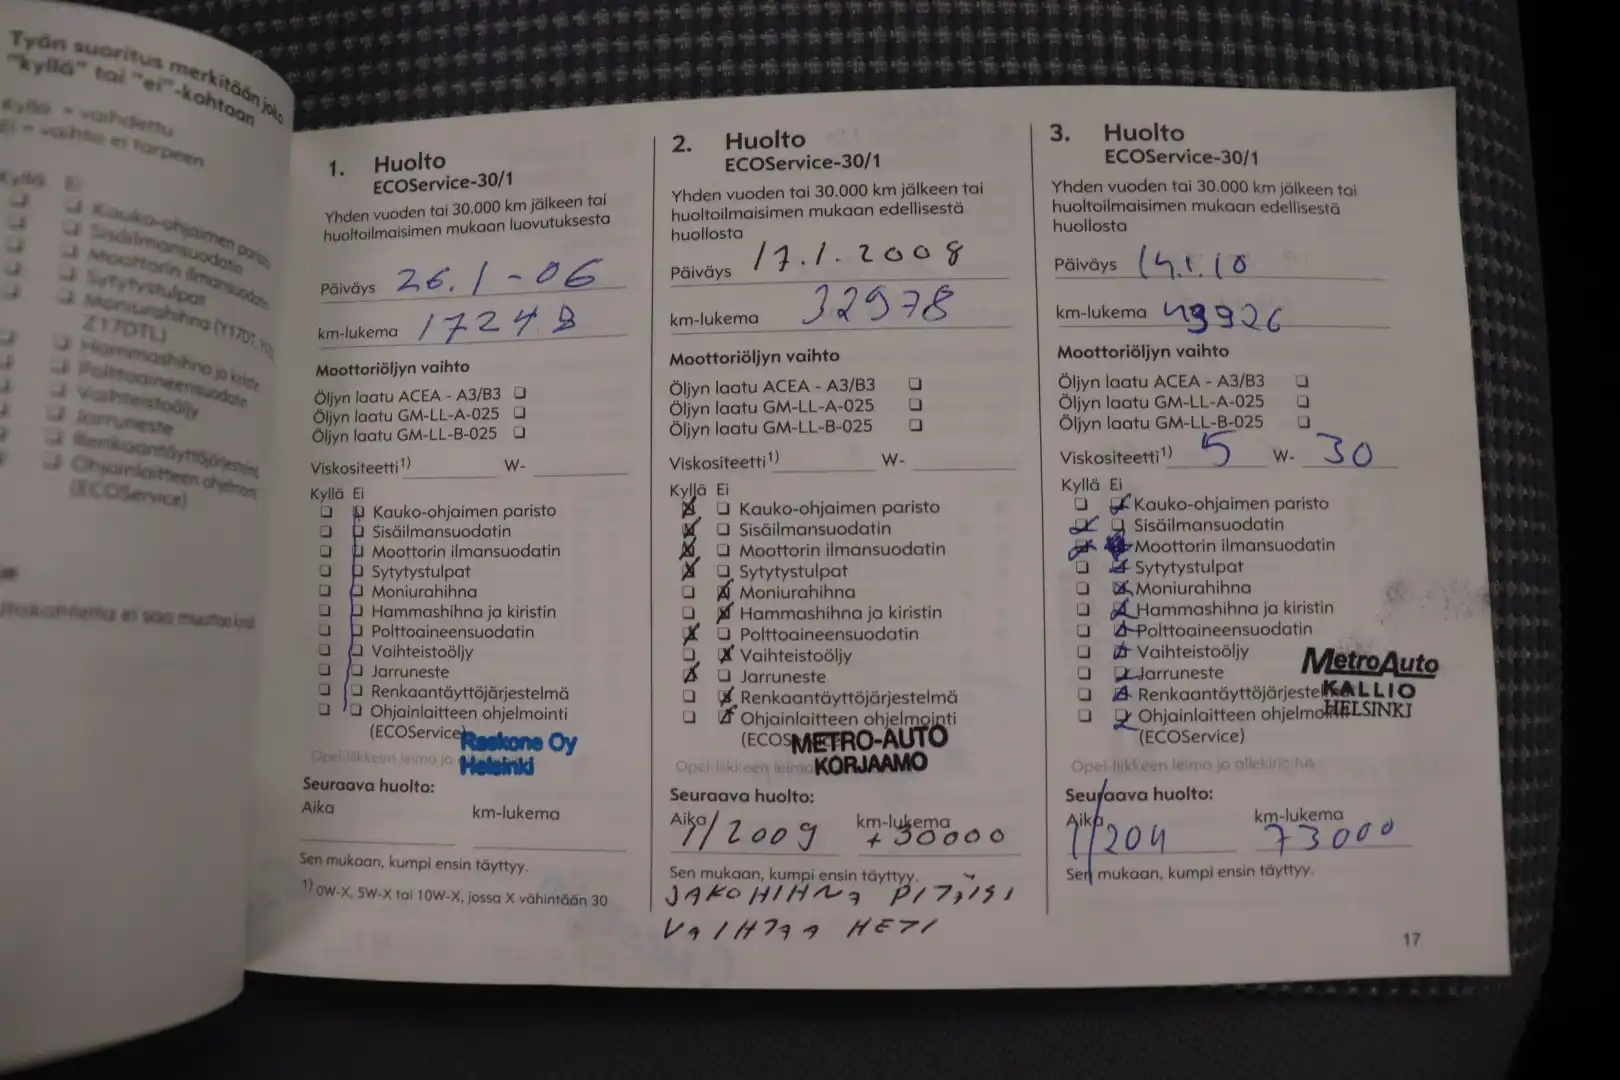 Työn suoritus merkitään joko
"kyllä" tai "ei"-kohtaan
Kyllä = vaihdettu
Ei = vaihto ei tarpeen
Kyllä Ei
Kauko-ohjaimen paristo
Sisäilmansuodatin
Moottorin ilmansuodatin
Sytytystulpat
Moniurahihna (Y17DT,
Z17DTL)
Hammashihna ja kiristin
Polttoaineensuodatin
Vaihteistoöljy
Jarruneste
Renkaantäyttöjärjestelmä
Ohjainlaitteen ohjelmointi
(ECOService)
1. Huolto
ECOService-30/1
Yhden vuoden tai 30.000 km jälkeen tai
huoltoilmaisimen mukaan luovutuksesta
Päiväys 26.1-06
km-lukema 17248
Moottoriöljyn vaihto
Öljyn laatu ACEA - A3/B3
Öljyn laatu GM-LL-A-025
Öljyn laatu GM-LL-B-025
Viskositeetti1) W-
Kyllä Ei
Kauko-ohjaimen paristo
Sisäilmansuodatin
Moottorin ilmansuodatin
Sytytystulpat
Moniurahihna
Hammashihna ja kiristin
Polttoaineensuodatin
Vaihteistoöljy
Jarruneste
Renkaantäyttöjärjestelmä
Ohjainlaitteen ohjelmointi
(ECOService)
Raskone Oy
Helsinki
Opel-liikkeen leima ja
Seuraava huolto:
Aika km-lukema
Sen mukaan, kumpi ensin täyttyy.
1) 0W-X, 5W-X tai 10W-X, jossa X vähintään 30
2. Huolto
ECOService-30/1
Yhden vuoden tai 30.000 km jälkeen tai
huoltoilmaisimen mukaan edellisestä
huollosta
Päiväys 17.1.2008
km-lukema 32978
Moottoriöljyn vaihto
Öljyn laatu ACEA - A3/B3
Öljyn laatu GM-LL-A-025
Öljyn laatu GM-LL-B-025
Viskositeetti1) W-
Kyllä Ei
Kauko-ohjaimen paristo
Sisäilmansuodatin
Moottorin ilmansuodatin
Sytytystulpat
Moniurahihna
Hammashihna ja kiristin
Polttoaineensuodatin
Vaihteistoöljy
Jarruneste
Renkaantäyttöjärjestelmä
Ohjainlaitteen ohjelmointi
(ECOS
METRO-AUTO
KORJAAMO
Opel-liikkeen leima
Seuraava huolto:
Aika 1/2009 km-lukema +30000
Sen mukaan, kumpi ensin täyttyy.
JAKOHIHNA PITÄISI
VAIHTAA HETI
3. Huolto
ECOService-30/1
Yhden vuoden tai 30.000 km jälkeen tai
huoltoilmaisimen mukaan edellisestä
huollosta
Päiväys 14.1.10
km-lukema 43926
Moottoriöljyn vaihto
Öljyn laatu ACEA - A3/B3
Öljyn laatu GM-LL-A-025
Öljyn laatu GM-LL-B-025
Viskositeetti1) 5 W- 30
Kyllä Ei
Kauko-ohjaimen paristo
Sisäilmansuodatin
Moottorin ilmansuodatin
Sytytystulpat
Moniurahihna
Hammashihna ja kiristin
Polttoaineensuodatin
Vaihteistoöljy
Jarruneste
Renkaantäyttöjärjestel
Ohjainlaitteen ohjelmo
(ECOService)
MetroAuto
KALLIO
HELSINKI
Opel-liikkeen leima ja allekirjoitus
Seuraava huolto:
Aika 1/2011 km-lukema 73000
Sen mukaan, kumpi ensin täyttyy.
17